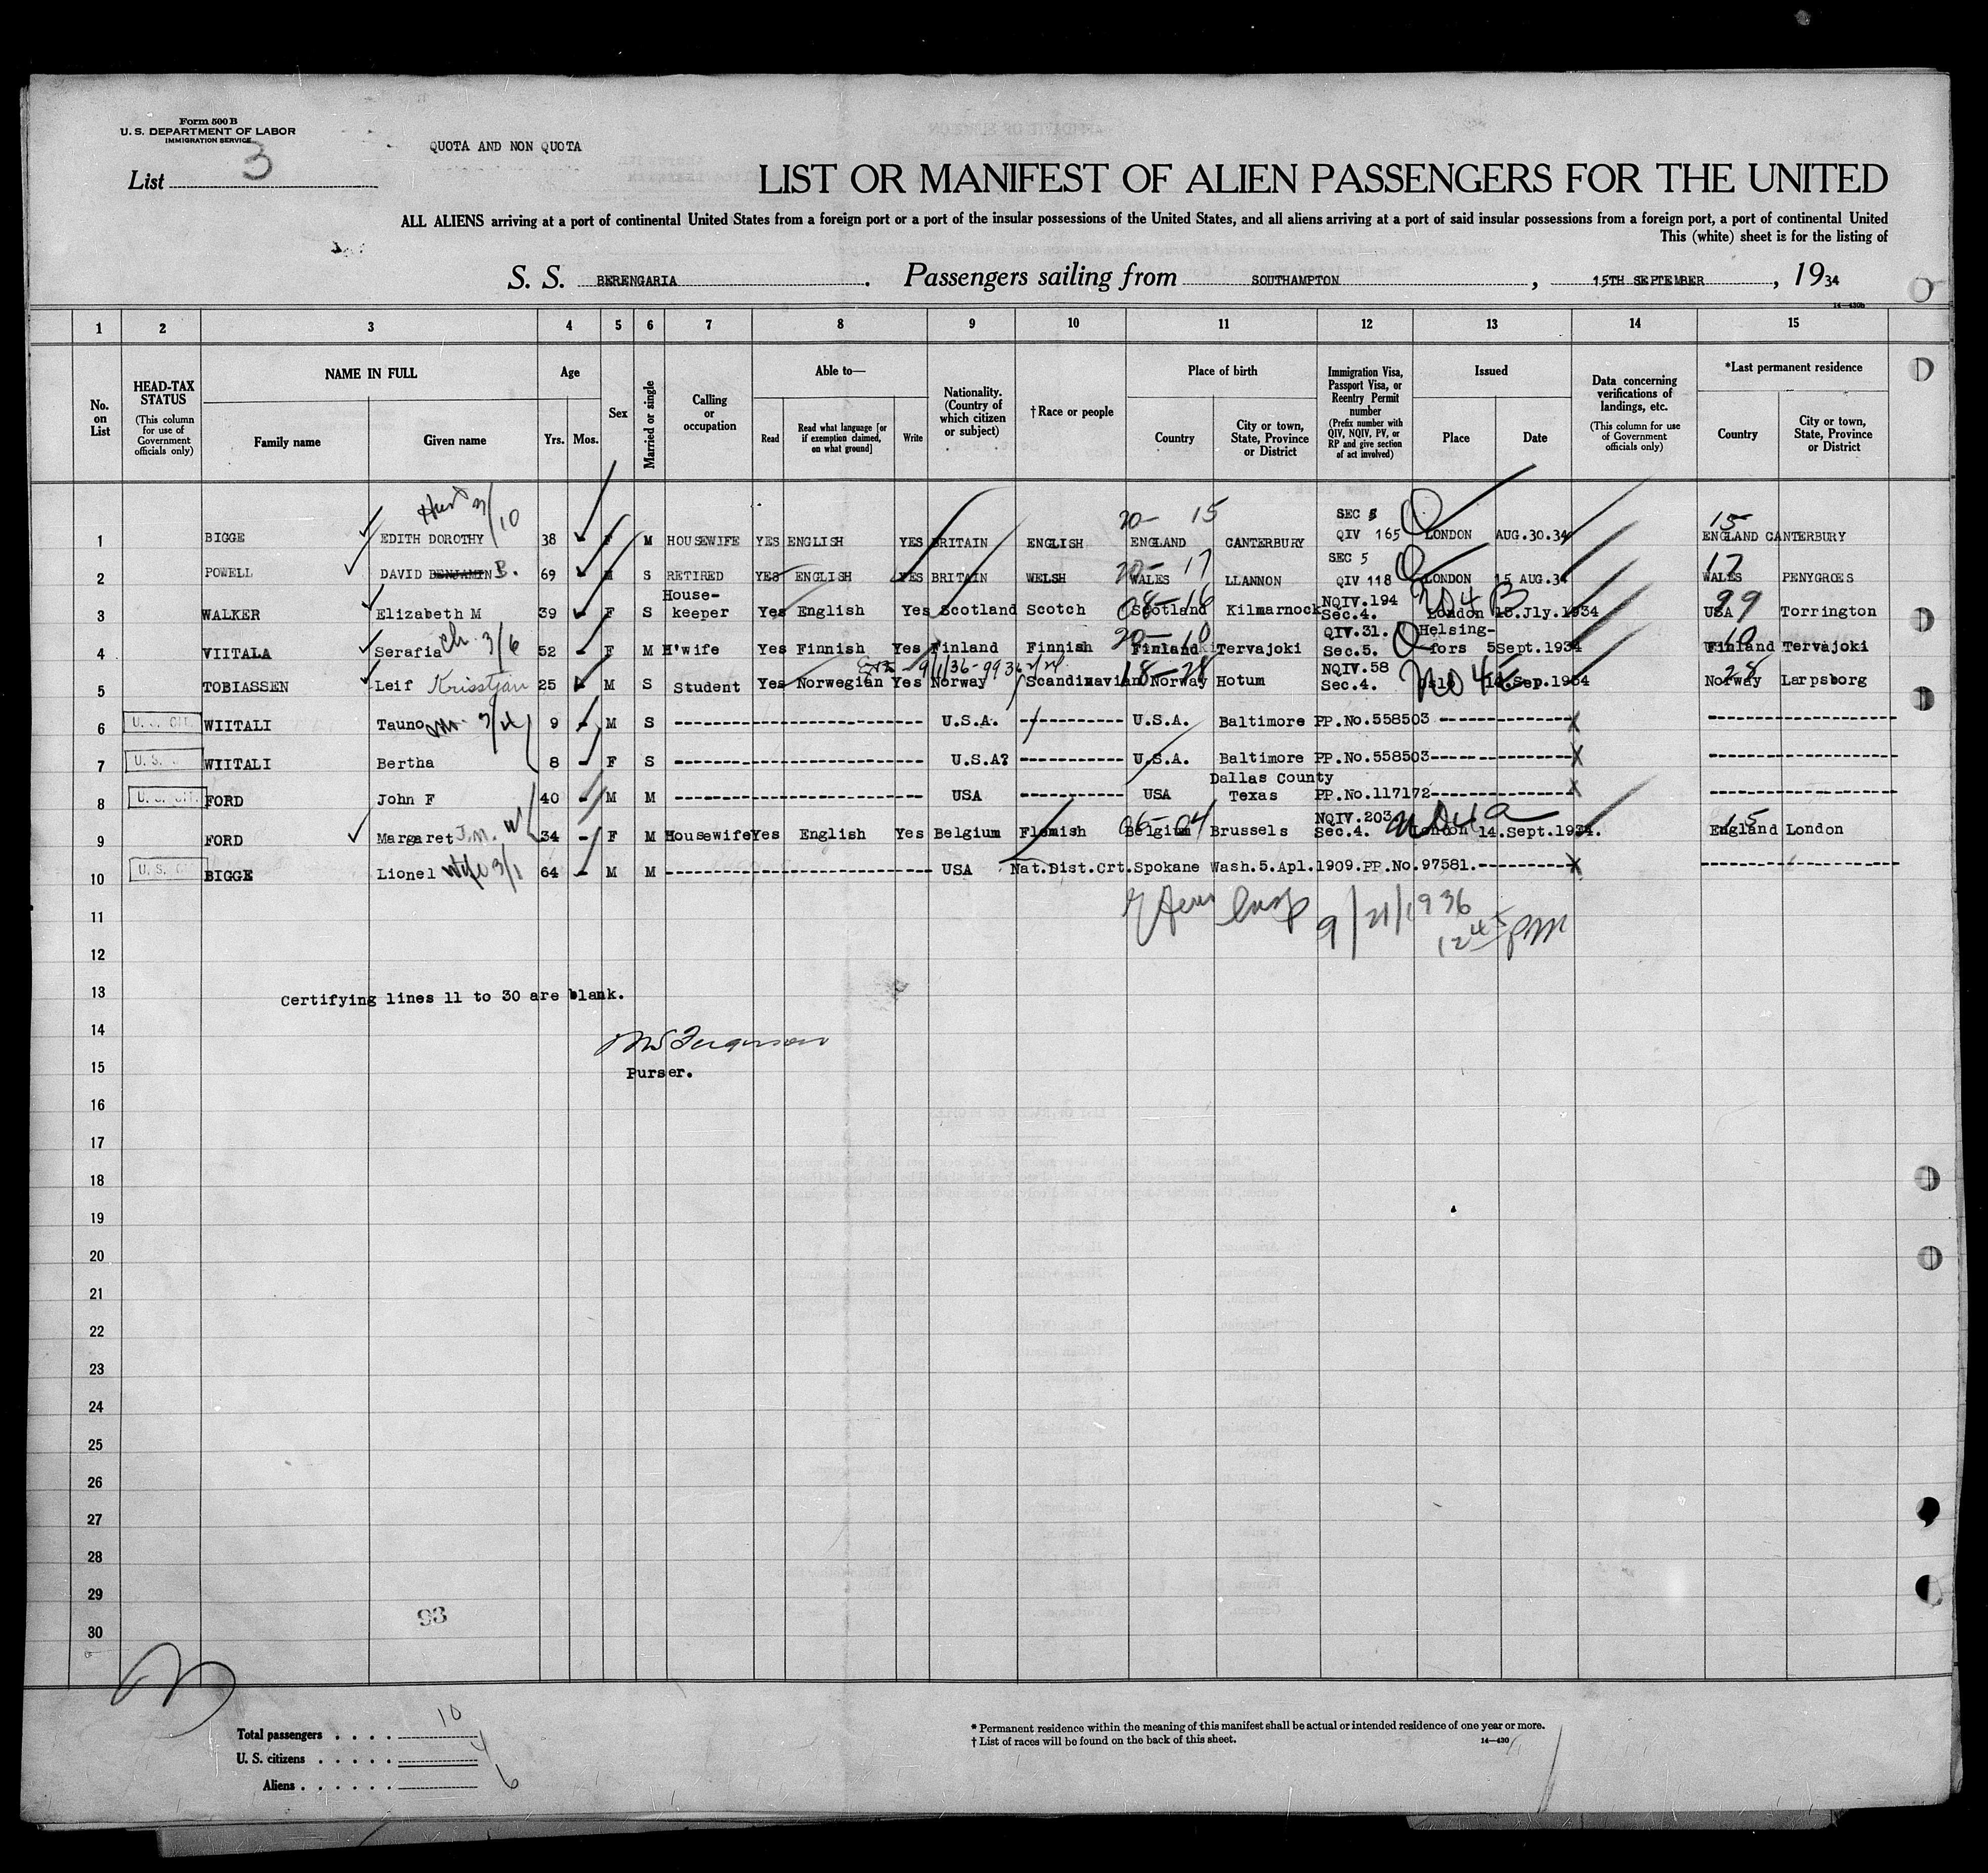 Form 500 B
U. S. DEPARTMENT OF LABOR
IMMIGRATION SERVICE
QUOTA AND NON QUOTA
List 3
LIST OR MANIFEST OF ALIEN PASSENGERS FOR THE UNITED
ALL ALIENS arriving at a port of continental United States from a foreign port or a port of the insular possessions of the United States, and all aliens arriving at a port of said insular possessions from a foreign port, a port of continental United
This (white) sheet is for the listing of
S. S. BERENGARIA. Passengers sailing from SOUTHAMPTON, 15TH SEPTEMBER, 1934
14—430b
1 2 3 4 5 6 7 8 9 10 11 12 13 14 15
No. on List
HEAD-TAX STATUS (This column for use of Government officials only)
NAME IN FULL Family name Given name
Age Yrs. Mos.
Sex
Married or single
Calling or occupation
Able to— Read Read what language [or if exemption claimed, on what ground] Write
Nationality. (Country of which citizen or subject)
† Race or people
Place of birth Country City or town, State, Province or District
Immigration Visa, Passport Visa, or Reentry Permit number (Prefix number with QIV, NQIV, PV, or RP and give section of act involved)
Issued Place Date
Data concerning verifications of landings, etc. (This column for use of Government officials only)
*Last permanent residence Country City or town, State, Province or District
3/10 20- 15 SEC 5 15
1 BIGGE EDITH DOROTHY 38 F M HOUSEWIFE YES ENGLISH YES BRITAIN ENGLISH ENGLAND CANTERBURY QIV 165 LONDON AUG.30.34 ENGLAND CANTERBURY
20- 17 SEC 5 17
2 POWELL DAVID BENJAMIN B. 69 M S RETIRED YES ENGLISH YES BRITAIN WELSH WALES LLANNON QIV 118 LONDON 15 AUG.34 WALES PENYGROES
3 WALKER Elizabeth M 39 F S House-keeper Yes English Yes Scotland Scotch 08-16 Scotland Kilmarnock NQIV.194 Sec.4. NO4B London 18.Jly.1934 99 USA Torrington
4 VIITALA Serafia ch 3/6 52 - F M H'wife Yes Finnish Yes Finland Finnish 20-10 Finland Tervajoki QIV.31. Sec.5. Helsing-fors 5Sept.1934 10 Finland Tervajoki
9/1/36-
5 TOBIASSEN Leif Kristtjan 25 M S Student Yes Norwegian Yes Norway Scandinavian 18-28 Norway Hotum NQIV.58 Sec.4. NO4E Oslo Sep.1934 28 Norway Larpsborg
6 U. S. CIT. WIITALI Tauno 9 - M S U.S.A. U.S.A. Baltimore PP.No.558503 X
7 U. S. WIITALI Bertha 8 - F S U.S.A? U.S.A. Baltimore PP.No.558503 X
8 U. S. CIT. FORD John F 40 - M M USA USA Dallas County Texas PP.No.117172 X
9 FORD Margaret J.M. W 34 - F M Housewife Yes English Yes Belgium Flemish 06-04 Belgium Brussels NQIV.203 Sec.4. NO4a London 14.Sept.1934. 15 England London
10 U. S. C BIGGE Lionel Wife 3/1 64 - M M USA Nat.Dist.Crt.Spokane Wash.5.Apl.1909.PP.No.97581. X
11
9/21/1936
12 45 PM
12
13 Certifying lines 11 to 30 are blank.
14
Ferguson
15 Purser.
16
17
18
19
20
21
22
23
24
25
26
27
28
29
93
30
Total passengers . . . . 10
U. S. citizens . . . . . 4
Aliens . . . . . . 6
* Permanent residence within the meaning of this manifest shall be actual or intended residence of one year or more.
† List of races will be found on the back of this sheet. 14—430